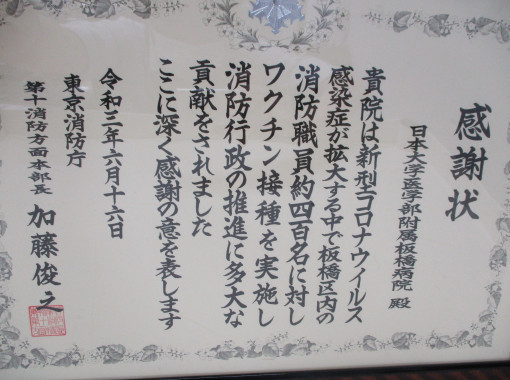 感謝状
日本大学医学部附属板橋病院 殿
貴院は新型コロナウイルス
感染症が拡大する中で板橋区内の
消防職員約四百名に対し
ワクチン接種を実施し
消防行政の推進に多大な
貢献をされました
ここに深く感謝の意を表します
令和三年六月十六日
東京消防庁
第十消防方面本部長 加藤俊之